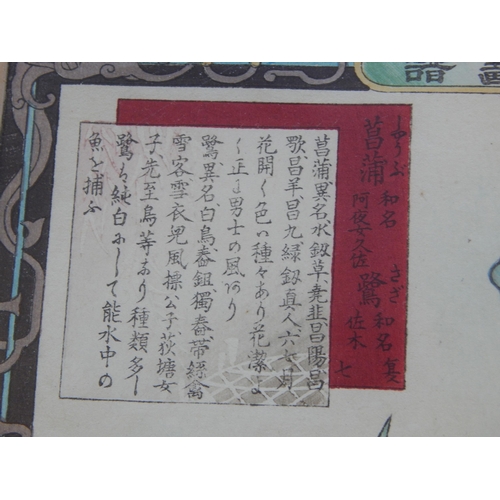 畫譜
菖蒲 和名 阿夜女久佐
しやうぶ
鷺 和名 佐木
さぎ
夏
七
菖蒲異名水劔草、尭韭、昌陽、菖
歜、昌羊、昌九、緑劔真人、六七月
花開く色い種々あり花潔よ
く正に男士の風あり
鷺異名、白鳥、舂鉏、獨舂、帯絲禽
雪客、雪衣児、風標公子、荻塘女
子、先至鳥等あり種類多し
鷺ハ純白にして能水中の
魚を捕ふ